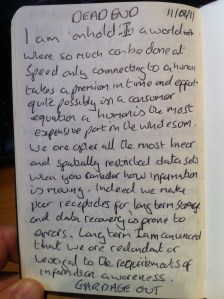 DEAD END 11/02/11
I am 'on hold' in a world
where so much can be done at
speed only connecting to a human
takes a premium in time and effort
quite possibly in a consumer
equation a human is the most
expensive part in the whole sum.
We are after all the most linear
and spatially restricted data sets
when you consider how information
is moving. Indeed we make
poor receptacles for long term storage
and data recovery is prone to
errors. Long term I am convinced
that we are redundant or
to the requirements of
information awareness.
GARBAGE OUT